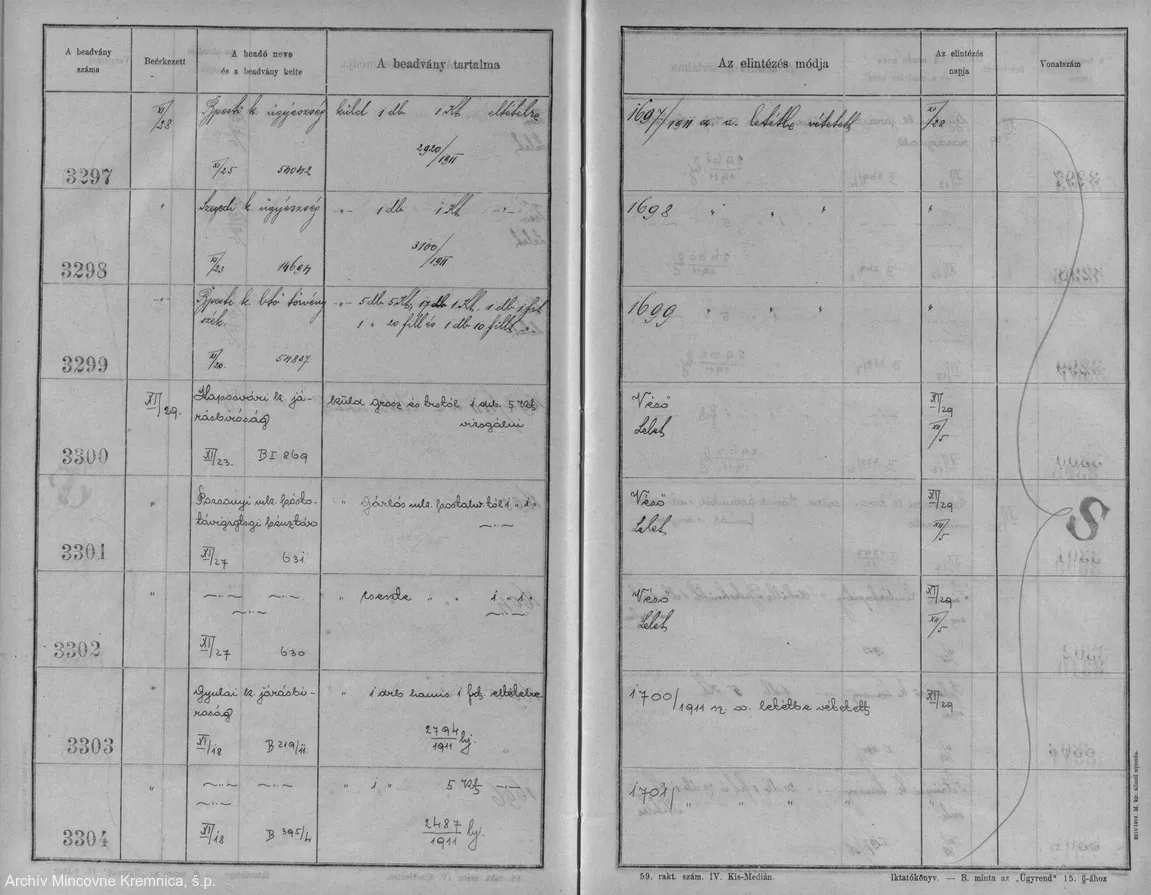 A beadvány
száma
Beérkezett
A beadó neve
és a beadvány kelte
A beadvány tartalma
Az elintézés módja
Az elintézés
napja
Vonatszám
XI/28
Bpesti k. ügyészség
küld 1 db 1 Kt eltételre
1697/1911 sz. a. letétbe vétetett
XI/28
2920/1911
XI/25 54042
3297
"
Szegedi k. ügyészség
-"- 1 db 1 Kt -"-
1698 " " "
"
3100/1911
XI/23 14694
3298
-"-
Bpesti k. btő törvény
szék
-"- 5 db 5 Kt, 17 db 1 Kt, 1 db 1 frt
1 " 20 fill és 1 db 10 fillt
1699 " " "
"
XI/20. 54807
3299
XI/29.
Kaposvári k. já-
rásbiróság
küld grosz és tstól 1 drb. 5 Kt
vizsgálni
Véső
Lelet
XI/29
XII/5
XI/23. B I 869
3300
"
Pozsonyi mk. posta-
távigrtsgi pénztár
" postahivtól 1 " 1 "
-"-
Véső
Lelet
XI/29
XII/5
XI/27 631
3301
"
-"- -"-
-"-
" " " 1 " 1 "
-"-
Véső
Lelet
XI/29
XII/5
XI/27 630
3302
"
Gyulai k. járásbi-
róság
" 1 drb hamis 1 frt eltételre
1700/1911 sz. a. letétbe vétetett
XI/29
2794/1911 bj.
XI/18 B 219/11
3303
"
-"- -"-
-"-
" 1 " 5 Kt -"-
1701/" " " "
2487/1911 bj.
XI/18 B 395/4
3304
S
59. rakt. szám. IV. Kis-Medián.
Iktatókönyv. — B. minta az „Ügyrend" 15. §-ához
Archív Mincovne Kremnica, š.p.